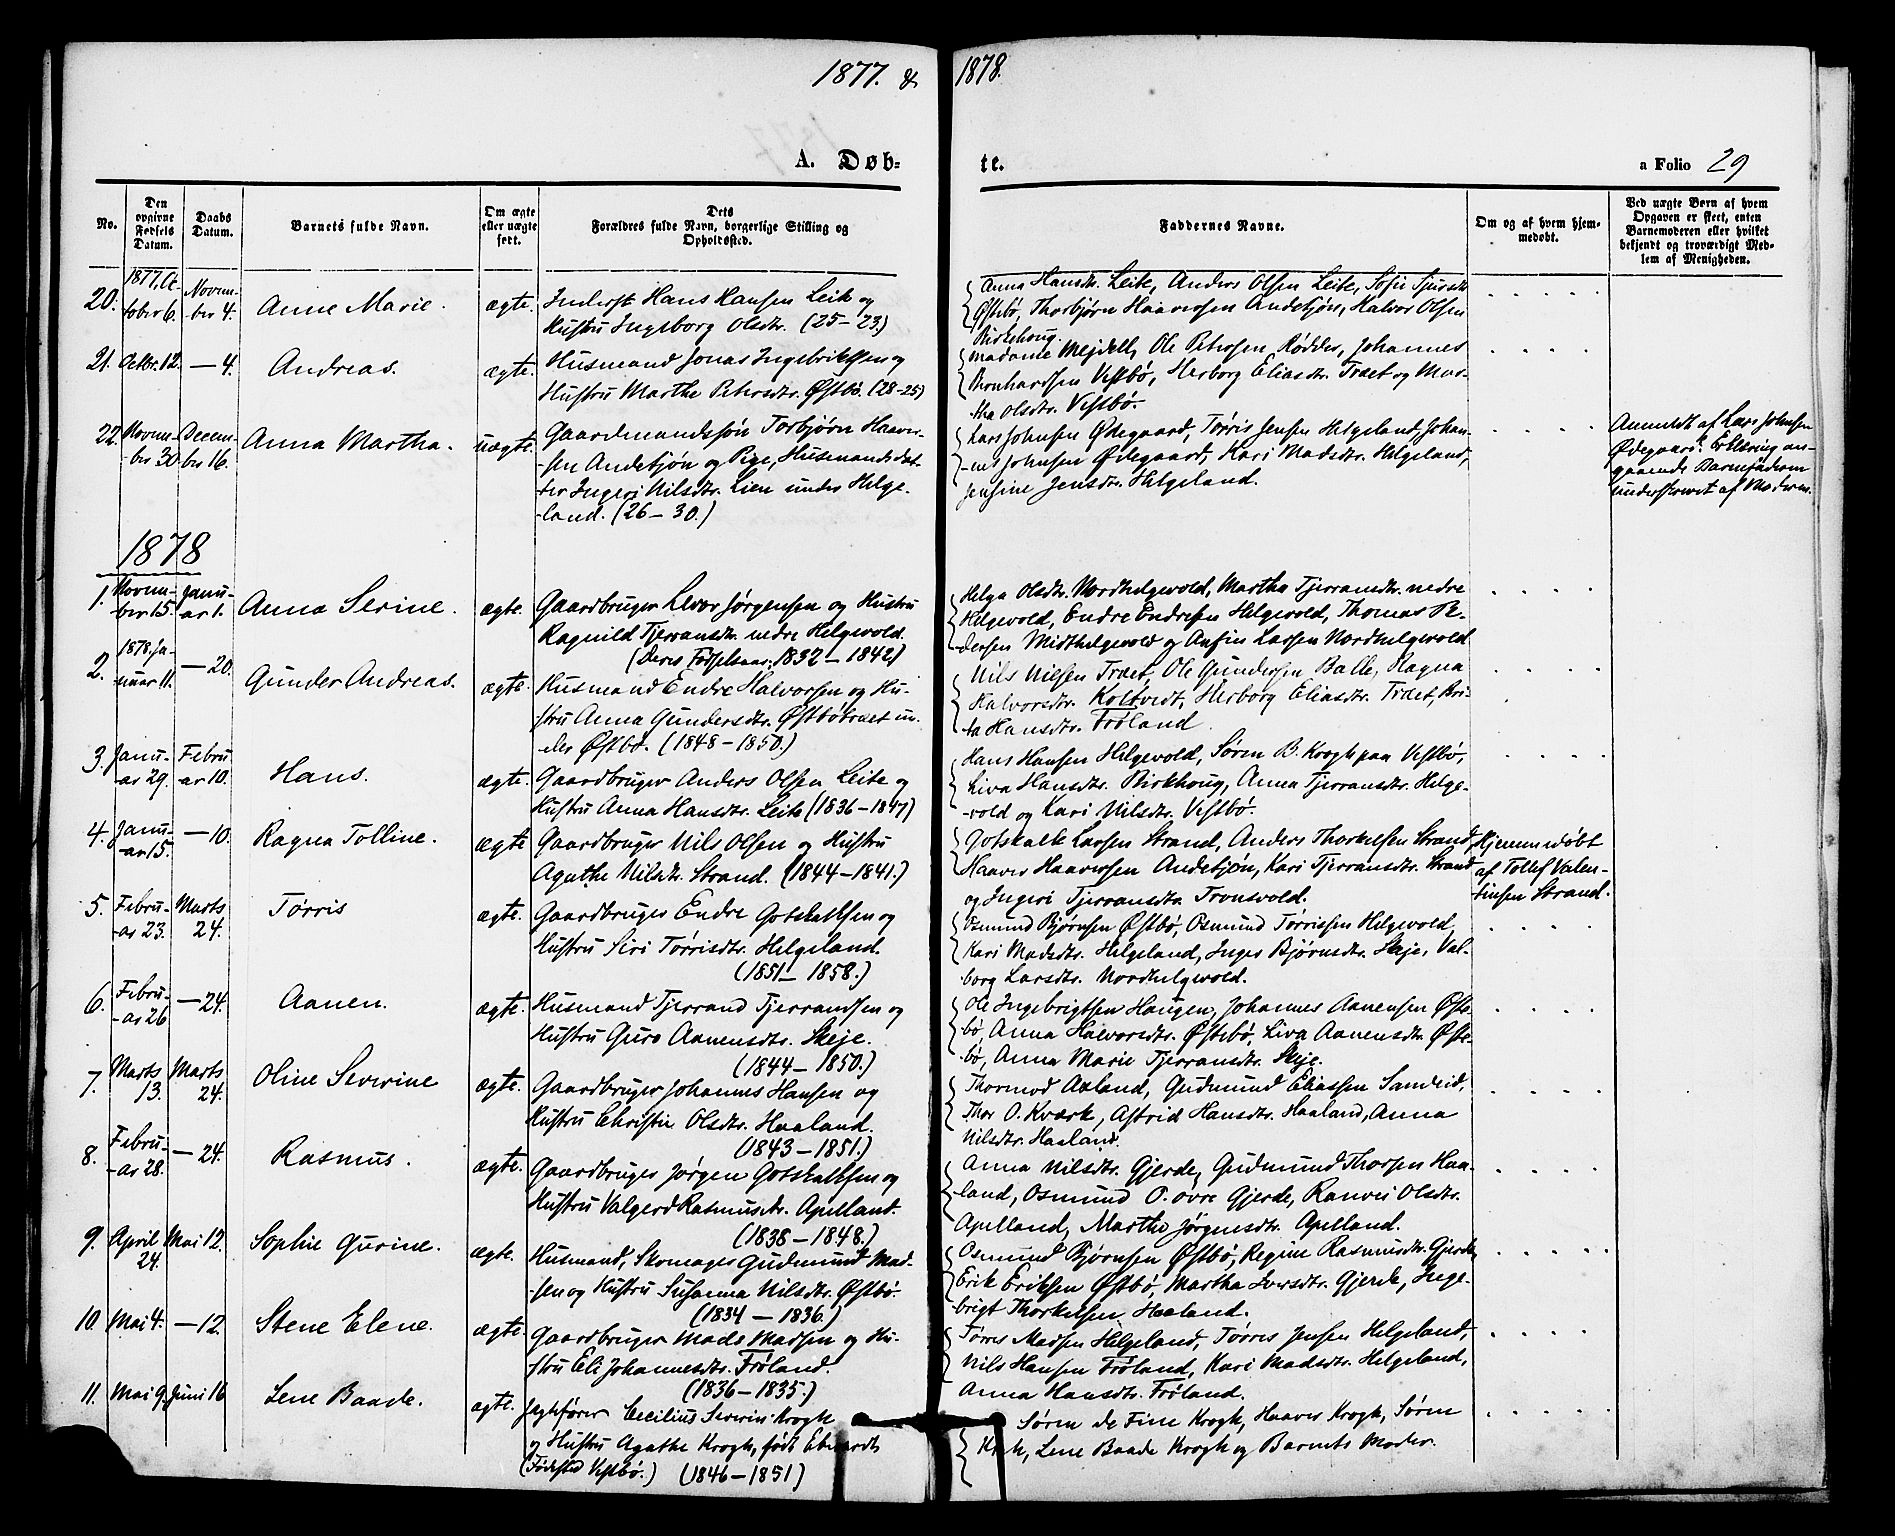 1877. & 1878.
A. Døb- te. a Folio 29
No. | Den opgivne Fødsels Datum. | Daabs Datum. | Barnets fulde Navn. | Om ægte eller uægte født. | Dets Forældres fulde Navn, borgerlige Stilling og Opholdssted. | Faddernes Navne. | Om og af hvem hjemmedøbt. | Ved uægte Børn af hvem Opgaven er skeet, enten Barnemoderen eller hvilket bekjendt og troværdigt Medlem af Menigheden.
20. 1877, October 6. Novem-
-ber 4. Anne Marie. ægte. Inderst Hans Hansen Leite og
Hustru Ingeborg Olsdtr. (25-23.)
Anna Hansdtr. Leite, Anders Olsen Leite, Sofie Sjursdtr.
Østebö, Thorbjørn Haaversen Andebjön, Halvor Olsen
Birkehoug.
21. Octbr. 12. — 4. Andreas. ægte. Husmand Jonas Ingebrigtsen og
Hustru Marthe Petersdtr. Østbö. (28-25)
Madame Mejdell, Ole Petersen Rødder, Johannes
Bernhardsen Vestbö, Herborg Eliasdtr. Træet og Mar-
tha Olsdtr. Vestbö.
22. Novem-
-ber 30 Decem-
ber 16. Anna Martha. uægte. Gaardmandssön Torbjörn Haaver-
-sen Andebjön og Pige, Husmandsdat-
ter Ingeri Nilsdtr. Lien under Helge-
-land. (26-30.)
Lars Johnsen Ødegaard, Tørris Jensen Helgeland, Johan-
-nes Johnsen Ødegaard, Kari Madsdtr. Helgeland,
Jensine Jensdtr. Helgeland.
Anmeldt af Lars Johnsen
Ødegaard. Erklæring an-
gaaende Barnefaderen
underskrevet af Moderen.
1878
1. Novem-
ber 15. Janu-
ar 1. Anna Serine. ægte. Gaardbruger Iver Jørgensen og Hustru
Ragnild Tjerransdtr. nedre Helgevold.
(Deres Fødselsaar: 1832-1842)
Helga Olsdtr. Nordhelgevold, Martha Tjerransdtr. nedre
Helgevold, Endre Endresen Helgevold, Thomas Pe-
dersen Midthelgevold og Anfin Larsen Nordhelgevold
2. 1878. Ja-
nuar 11. — 20. Gunder Andreas. ægte. Husmand Endre Halvorsen og Hu-
stru Anna Gundersdtr. Østbötraet un-
der Østbö. (1848-1850.)
Nils Nilsen Træet, Ole Gundersen Balle, Ragna
Halvorsdtr. Koltvedt, Herborg Eliasdtr. Træet, Bri-
ta Hansdtr. Fröland.
3. Janu-
ar 29. Febru
ar 10. Hans. ægte. Gaardbruger Anders Olsen Leite og
Hustru Anna Hansdtr. Leite (1836-1847)
Hans Hansen Helgevold, Søren B. Krogh paa Vestbö,
Liva Hansdtr. Birkhoug, Anna Tjerransdtr. Helge-
-vold og Kari Nilsdtr. Vestbö.
4. Janu-
-ar 15. — 10. Ragna Tolline. ægte Gaardbruger Nils Olsen og Hustru
Agathe Nilsdtr. Strand. (1844-1841.)
Gotskalk Larsen Strand, Anders Thorkelsen Strand,
Haaver Haaversen Andebjön, Kari Tjerransdtr. Strand
og Ingeri Tjerransdtr. Tronsvold.
Hjemmedøbt
af Tollef Valen-
tinsen Strand.
5. Febru-
-ar 23. Marts
24. Tørris ægte. Gaardbruger Endre Gotskalksen og
Hustru Siri Tørrisdtr. Helgeland.
(1851-1858.)
Osmund Bjørnsen Østbö, Osmund Tørrissen Helgevold,
Kari Madsdtr. Helgeland, Inger Bjørnsdtr. Skeje, Val-
borg Larsdtr. Nordhelgevold.
6. Febru-
-ar 26 — 24. Aanen. ægte. Husmand Tjerrand Tjerrandsen og
Hustru Guro Aanensdtr. Skeje.
(1844-1850.)
Ole Ingebrigtsen Haugen, Johannes Aanensen Øste-
bö, Anna Halvorsdtr. Østebö, Liva Aanensdtr. Øste-
bö, Anna Marie Tjerransdtr. Skeje.
7. Marts
13. Marts
24. Oline Severine ægte. Gaardbruger Johannes Hansen og
Hustru Christie Olsdtr. Haaland.
(1843-1851.)
Thormod Axland, Gudmund Eliassen Sandeid,
Thor O. Kværk, Astrid Hansdtr. Haaland, Anna
Nilsdtr. Haaland.
8. Febru-
-ar 28. — 24. Rasmus. ægte. Gaardbruger Jørgen Gotskalksen og
Hustru Valgerd Rasmusdtr. Apelland.
(1838-1848.)
Anna Nilsdtr. Gjerde, Gudmund Thorsen Haa-
land, Osmund O. övre Gjerde, Ranvei Olsdtr.
Apelland, Marthe Jørgensdtr. Apelland.
9. April
24. Mai 12. Sophie Gurine. ægte. Husmand, Skomager Gudmund Mad-
-sen og Hustru Susanna Nilsdtr. Østbö.
(1834-1836.)
Osmund Bjørnsen Østbö, Regine Rasmusdtr. Gjerde,
Erik Eriksen Østbö, Martha Iversdtr. Gjerde, Inge-
brigt Thorkelsen Haaland.
10. Mai 4. — 12. Stene Elene. ægte. Gaardbruger Mads Madsen og Hu-
stru Eli Johannesdtr. Fröland.
(1836-1835.)
Tørres Madsen Helgeland, Tørres Jensen Helgeland,
Nils Hansen Fröland, Kari Madsdtr. Helgeland,
Anna Hansdtr. Fröland.
11. Mai 9. Juni 16 Lene Baade. ægte. Jagtfører Cecilius Severin Krogh
og Hustru Agathe Krogh, født Edvards
(Fødested Vestbö.) (1846-1851)
Søren de Fine Krogh, Haaver Krogh, Søren
Krogh, Lene Baade Krogh og Barnets Moder.